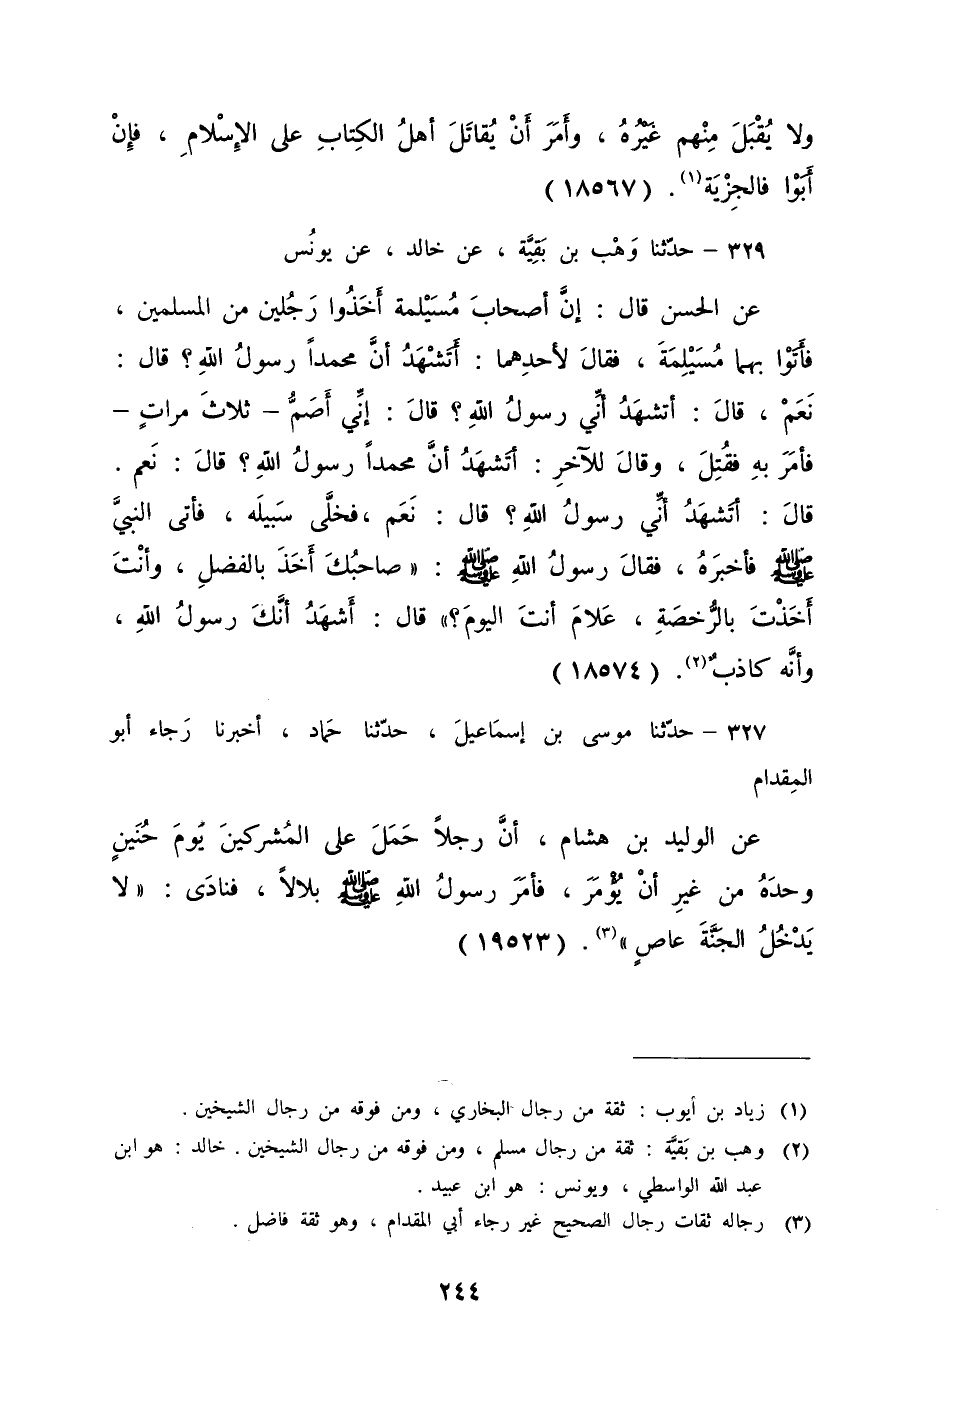 ولا يُقْبَلَ مِنْهم غَيْرُهُ ، وأَمَرَ أَنْ يُقاتَلَ أهلُ الكِتابِ على الإِسْلامِ ، فإِنْ
أَبَوْا فالجِزْيَة(١) . (١٨٥٦٧)
٣٢٩ – حدّثنا وَهْب بن بَقِيَّة ، عن خالد ، عن يونُس
عن الحسن قال : إنَّ أصحابَ مُسَيْلمة أَخَذُوا رَجُلين من المسلمين ،
فأَتَوْا بهما مُسَيْلِمَةَ ، فقالَ لأحدِهما : أَتَشْهَدُ أنَّ محمداً رسولُ اللهِ؟ قال :
نَعَمْ ، قالَ : أتشهَدُ أنِّي رسولُ اللهِ؟ قالَ : إنِّي أَصَمُّ – ثلاثَ مراتٍ –
فأمَرَ بهِ فقُتِلَ ، وقالَ للآخرِ : أتَشهَدُ أنَّ محمداً رسولُ اللهِ؟ قالَ : نَعم .
قالَ : أتَشهَدُ أنِّي رسولُ اللهِ؟ قال : نَعَم ،فخلَّى سَبيلَه ، فأتى النبيَّ
ﷺ فأخبرَهُ ، فقالَ رسولُ اللهِ ﷺ : « صاحبُكَ أَخَذَ بالفضلِ ، وأنْتَ
أَخَذْتَ بالرُّخصَةِ ، عَلامَ أنتَ اليومَ؟» قال : أَشهَدُ أنَّكَ رسولُ اللهِ ،
وأنَّه كاذبٌ(٢). (١٨٥٧٤)
٣٢٧ – حدّثنا موسى بن إسمَاعيلَ ، حدّثنا حمَاد ، أخبرنا رَجاء أبو
المِقدام
عن الوليد بن هشام ، أنَّ رجلاً حَمَلَ على المُشركينَ يَومَ حُنَينٍ
وحدَهُ من غيرِ أنْ يُؤْمَرَ ، فأمَرَ رسولُ اللهِ ﷺ بلالاً ، فنادَى : « لا
يَدْخُلُ الجنَّةَ عاصٍ »(٣) . (١٩٥٢٣)
(١) زياد بن أيوب : ثقة من رجال البخاري ، ومن فوقه من رجال الشيخين .
(٢) وهب بن بَقيَّة : ثقة من رجال مسلم ، ومن فوقه من رجال الشيخين . خالد : هو ابن
عبد الله الواسطي ، ويونس : هو ابن عبيد .
(٣) رجاله ثقات رجال الصحيح غير رجاء أبي المقدام ، وهو ثقة فاضل .
٢٤٤